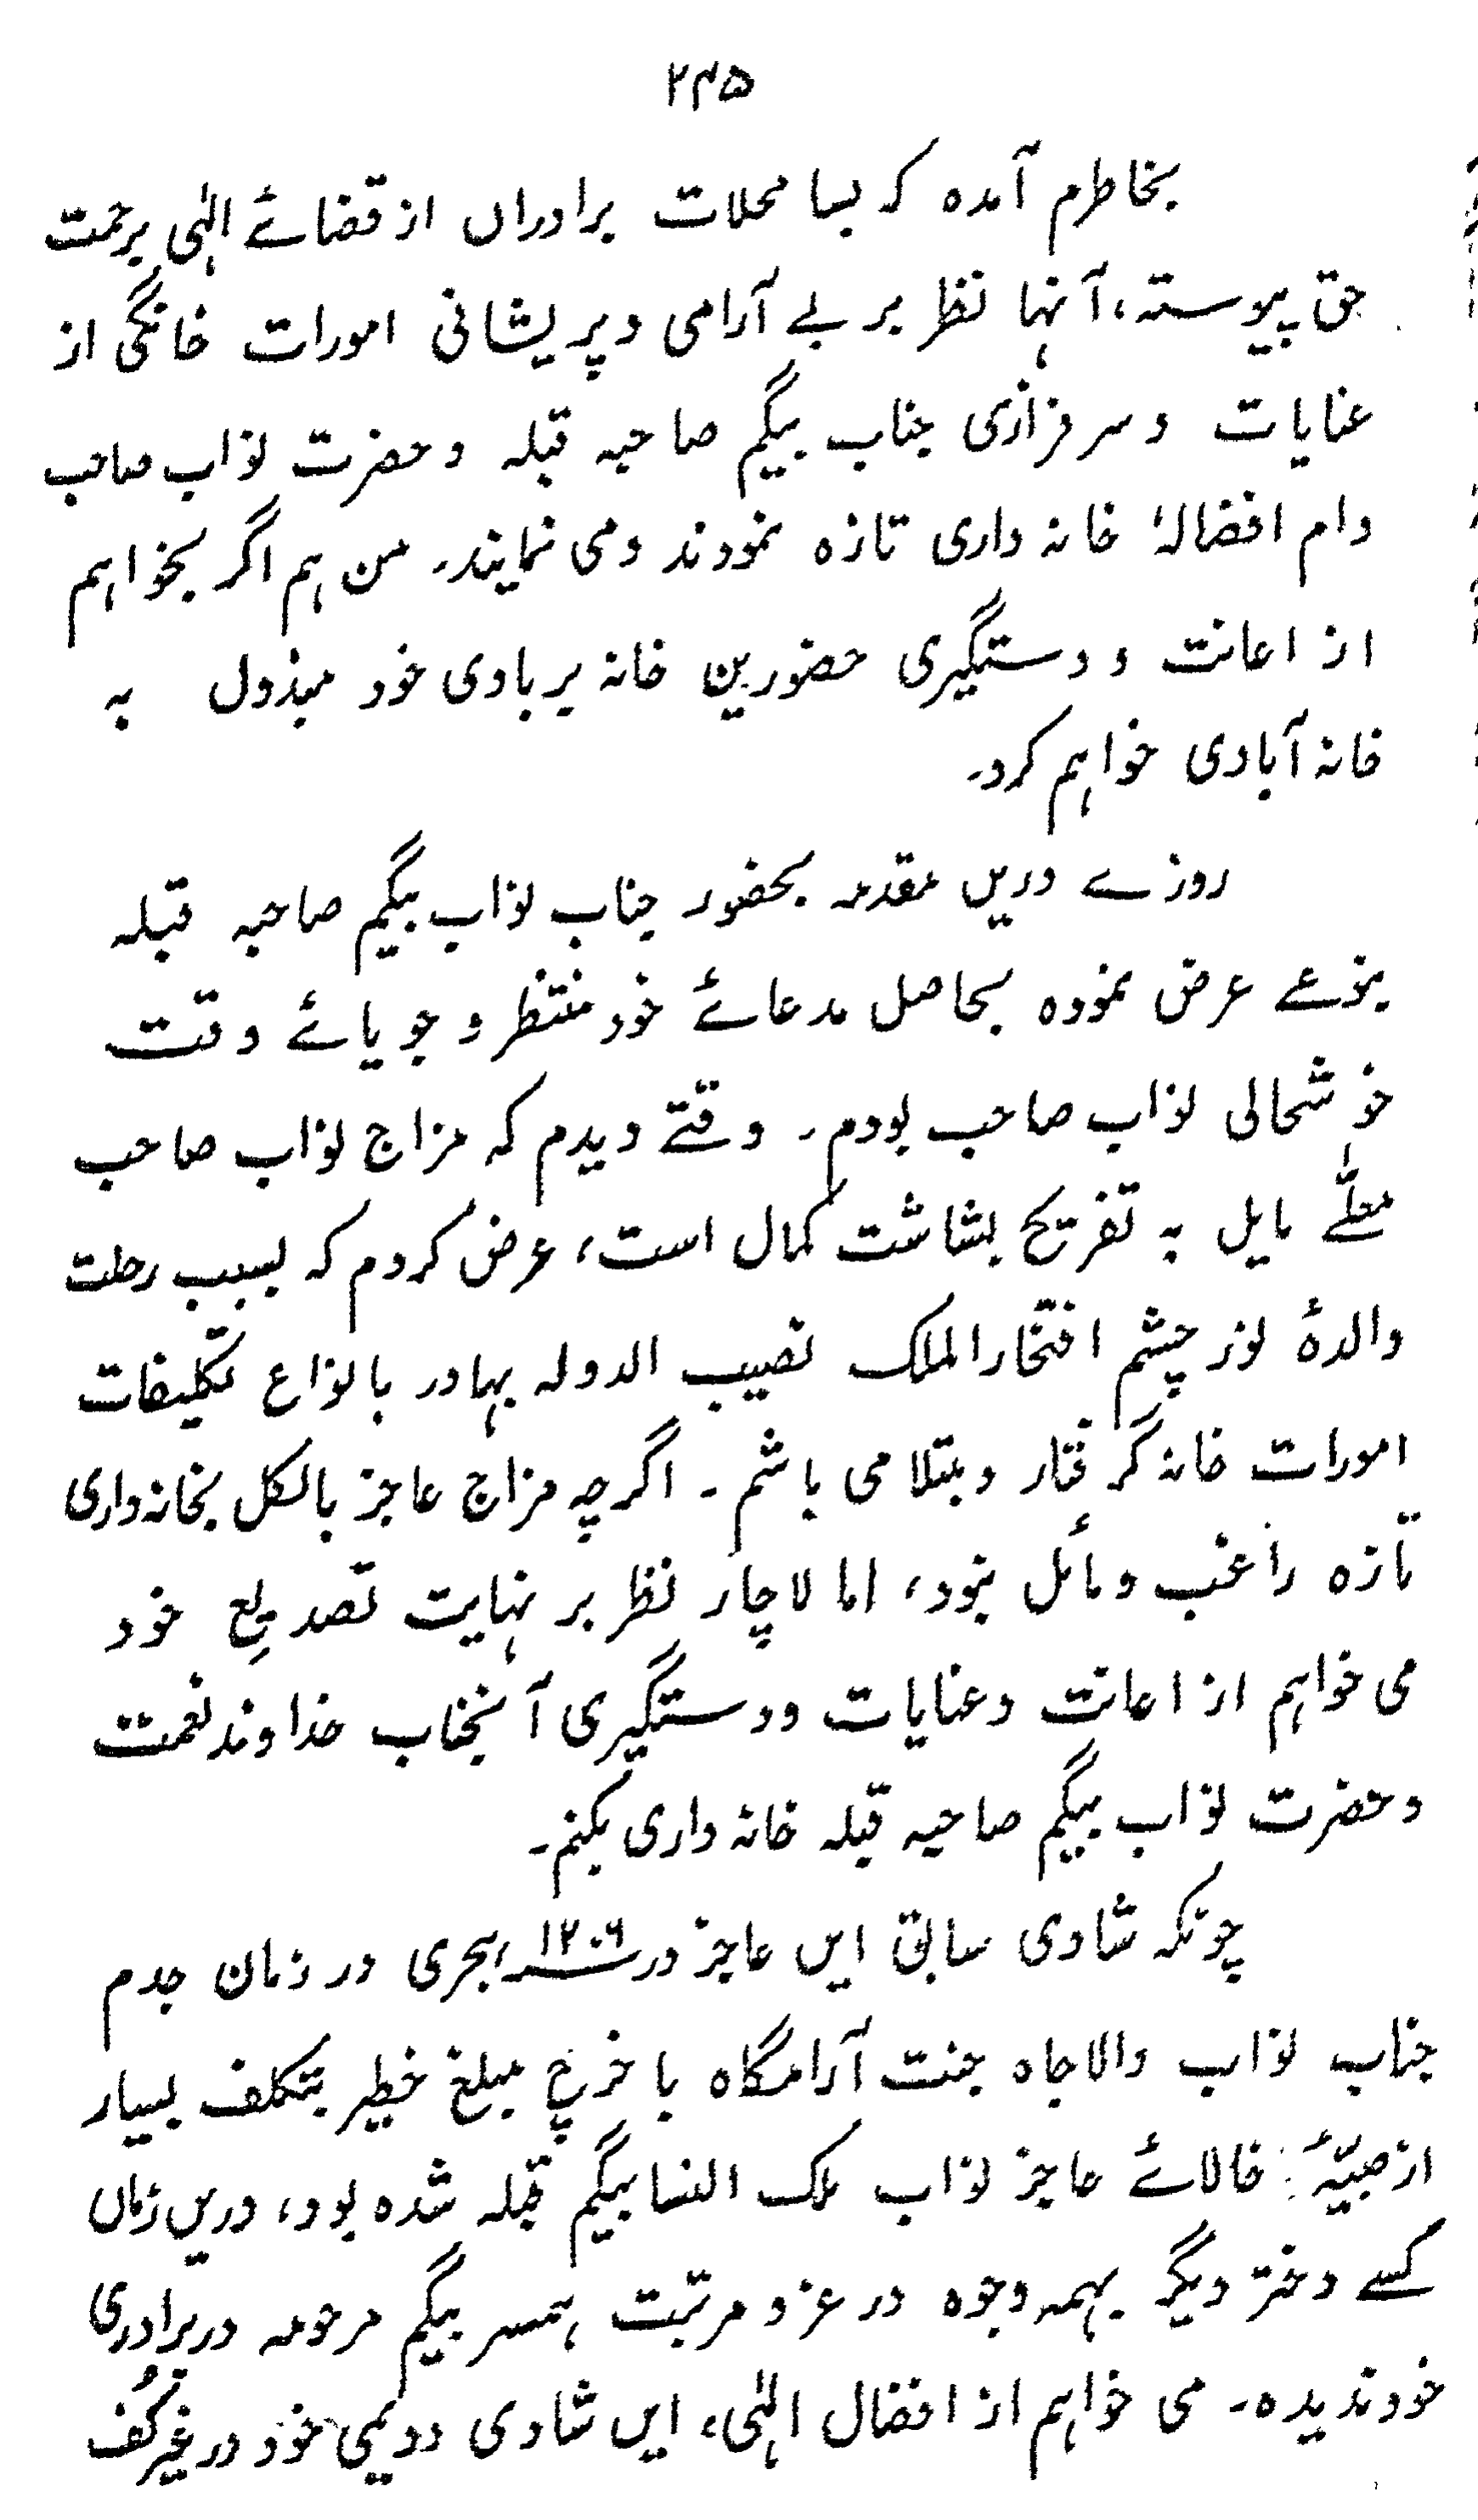 ۲۴۵
بخاطرم آمدہ کہ بسا محلات برادراں از قضائے الٰہی برحمت
حق پیوستہ، آنہا نظر بر بے آرامی و پریشانی امورات خانگی از
عنایات و سرفرازی جناب بیگم صاحبہ قبلہ و حضرت نواب صاحب
دام افضالہٗ خانہ داری تازہ نمودند و می نمایند۔ من ہم اگر بخواہم
از اعانت و دستگیری حضورین خانہ بربادی خود مبذول بہ
خانہ آبادی خواہم کرد۔
روزے دریں مقدمہ بحضور جناب نواب بیگم صاحبہ قبلہ
بنوعے عرض نمودہ بحاصل مدعائے خود منتظر و جویائے وقت
خوشحالی نواب صاحب بودم۔ وقتے دیدم کہ مزاج نواب صاحب
معلّٰے مایل بہ تفریح بشاشت کمال است، عرض کردم کہ بسبب رحلت
والدۂ نور چشم افتخار الملک نصیب الدولہ بہادر بانواع تکلیفات
امورات خانہ گرفتار و مبتلا می باشم۔ اگرچہ مزاج عاجز بالکل بخانہ داری
تازہ راغب و مائل نبود، اما لاچار نظر بر نہایت تصدیع خود
می خواہم از اعانت و عنایات و دستگیری آنجناب خداوند نعمت
و حضرت نواب بیگم صاحبہ قبلہ خانہ داری بکنم۔
چونکہ شادی سابق ایں عاجز در ۱۲۰۶ ہجری در زمان جدم
جناب نواب والاجاہ جنت آرامگاہ با خرچ مبلغ خطیر بتکلف بسیار
از صبیّۂ خالائے عاجز نواب ملک النسا بیگم قبلہ شدہ بود، دریں زماں
کسے دختر دیگر بہمہ وجوہ در عز و مرتبت ہمسر بیگم مرحومہ در برادری
خود ندیدہ۔ می خواہم از افضال الٰہی، ایں شادی دویمی خود در غیر کُف